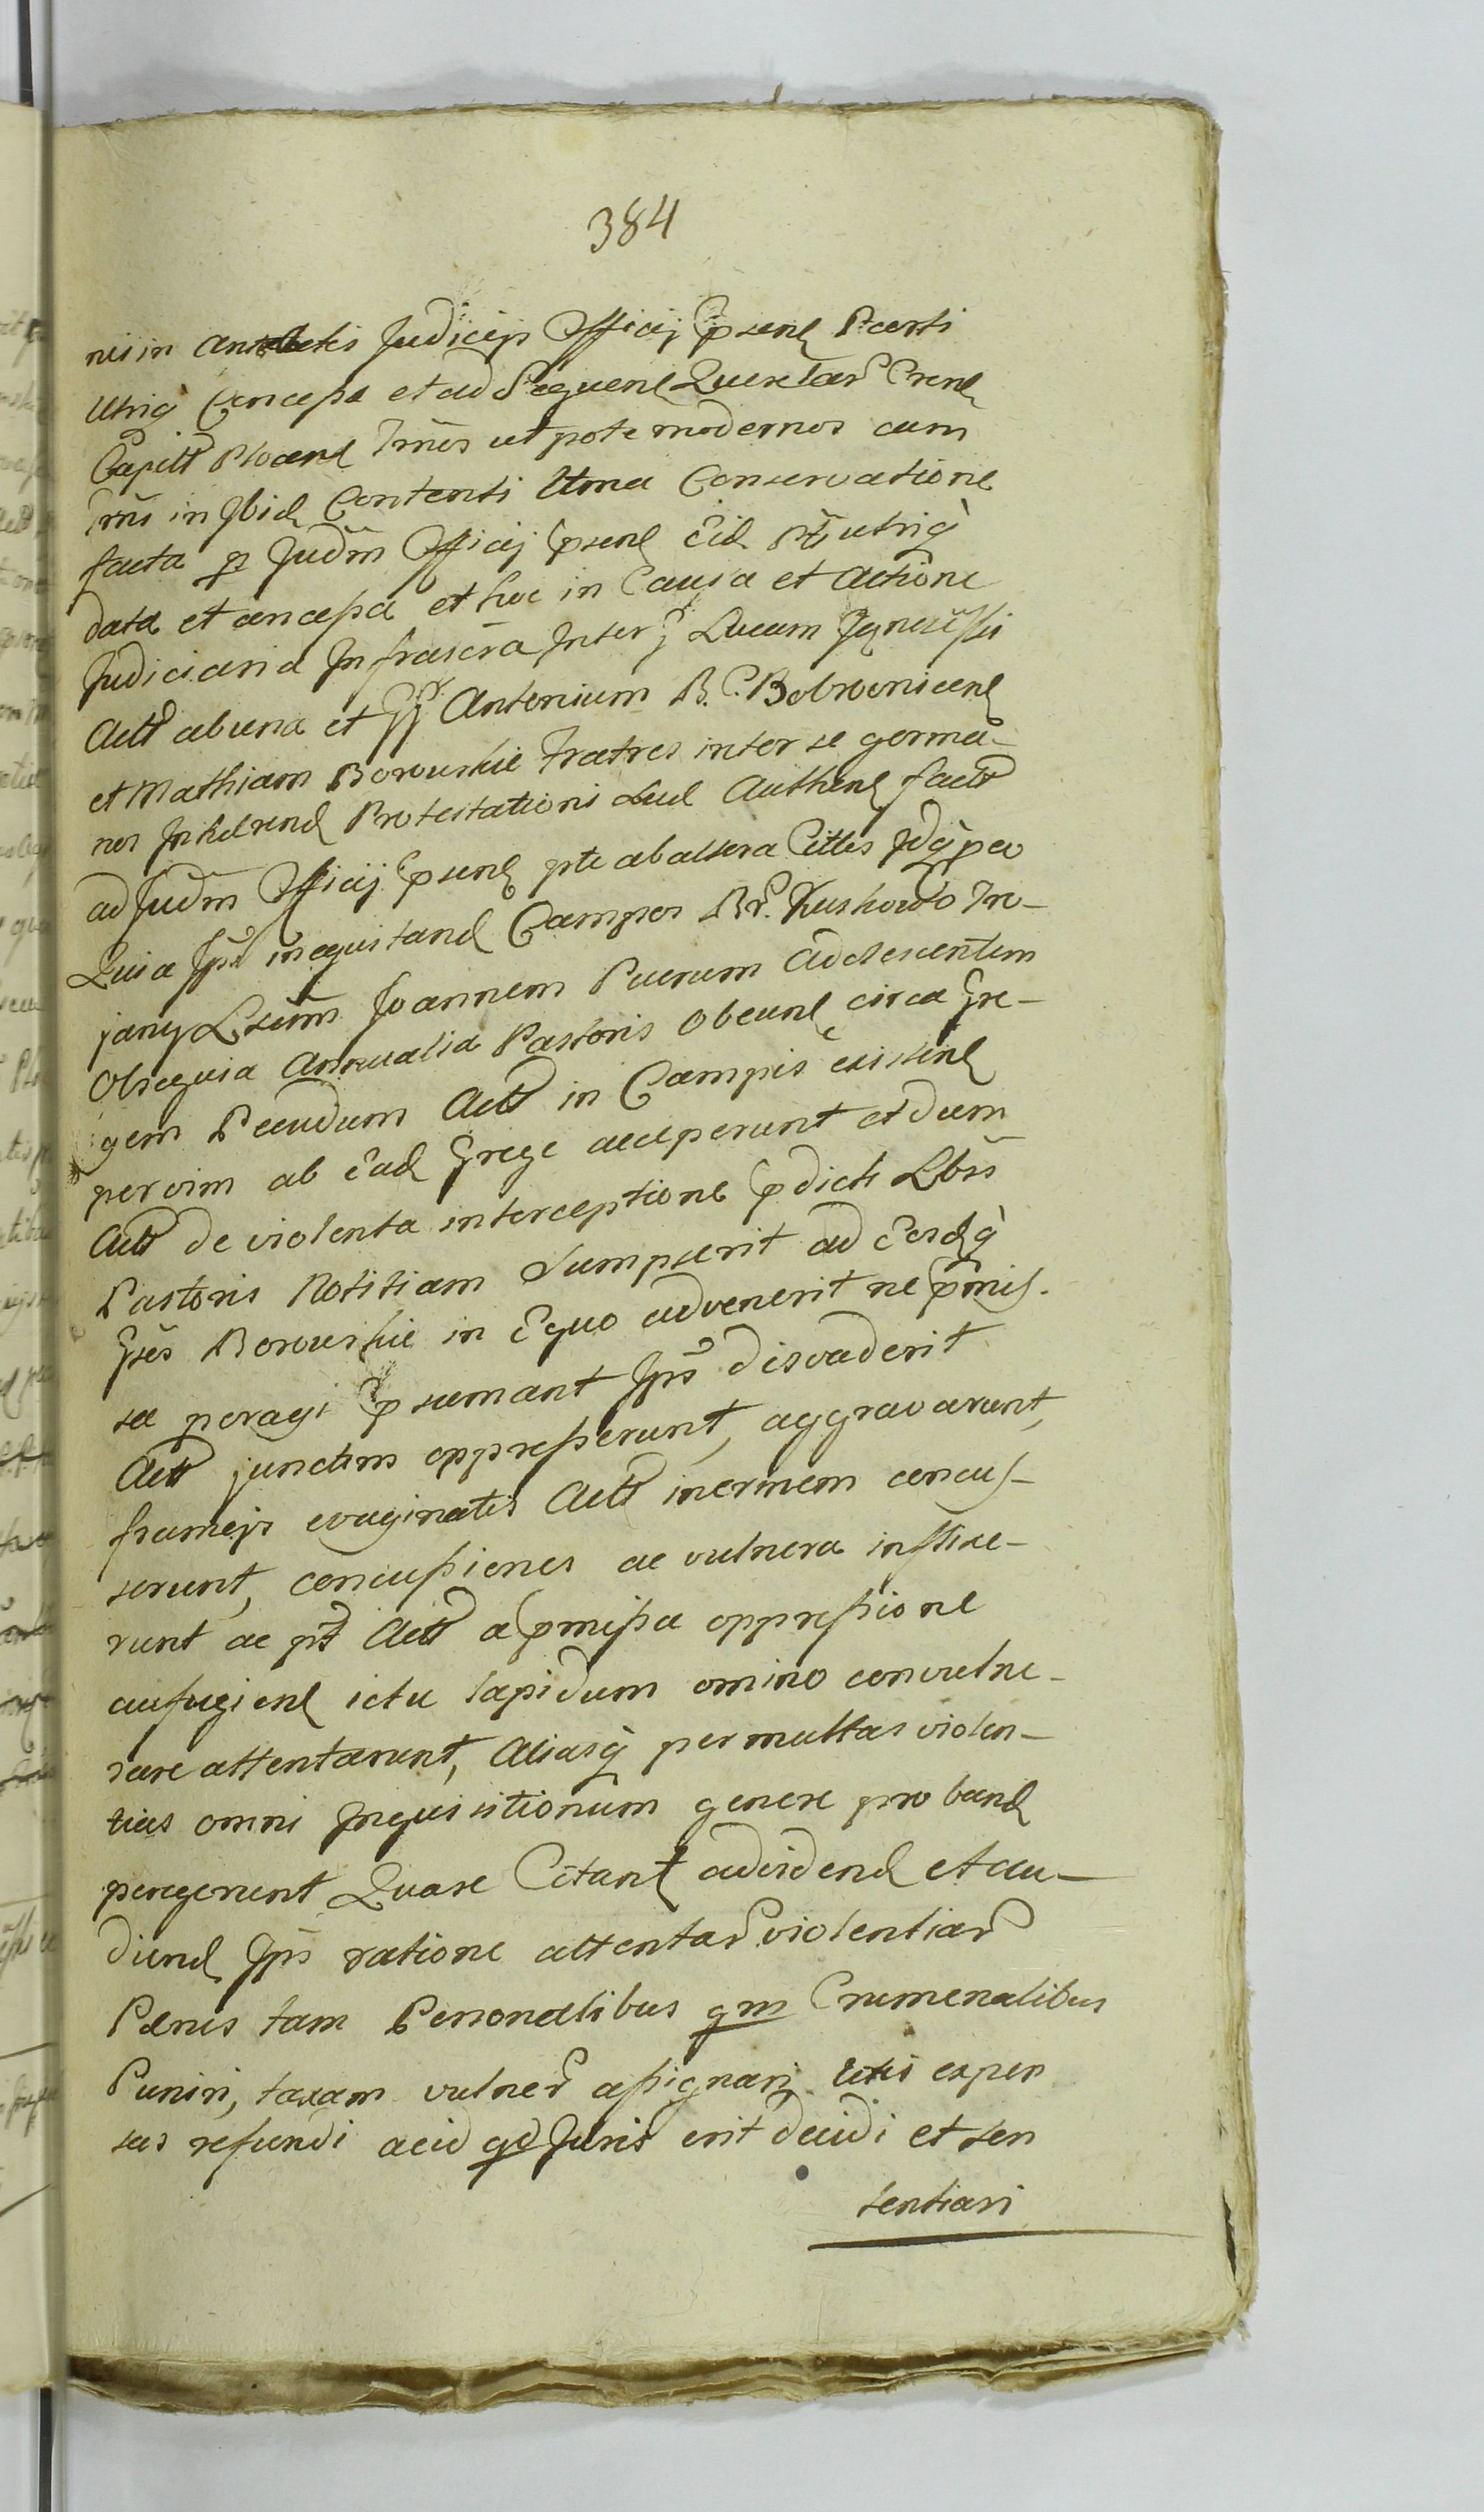 384
nis in Antelatis Judicijs Officij Psent Parti
Utriq Concessa et ad Sequent Querelar Crent
Capitt Plocent Trnos utpote modernos cum
Trni in Ibid Contenti Una Conservatione
facta p Judm Officij Psent Eid Pti utriq
data et concessa et hoc in Causa et Actione
Judiciaria Infrascra Inter G Lucam
Actt ab una et GG Antonium B. C. Bobrownicent
et Mathiam Borowskie Fratres inter se germa-
nos Inhdrend Protestationi Sud Authent factt
ad Judm Officij Psent pte ab altera Cittes Idq peo
Quia Ipsi inequitand Campos Br. Kuskowo Tro-
jany Lsum Joannem Puerum Adolescentem
Obsequia Annualia Pastoris Obeunt circa Gre-
gem Pecudum Actt in Campis existent
per vim ab Ead Grege acceperunt et dum
Actt de violenta interceptione Pdicti Lbsi
Pastoris Notitiam Sumpserit ad Eosdq
Gsos Borowskie in Equo advenerit ne pmis-
sa peragi Psumant Ipsis disvaderit
Actt junctim oppresserunt, aggravarunt,
frameis evaginatis Actt inermem concus-
serunt, concussiones ac vulnera inflixe-
runt ac pt Actt a pmissa oppressione
aufugient ictu lapidum omino convulne-
rare attentarunt, Aliasq permultas violen-
tias omni Inquisitionum genere proband
peregerunt Quare Citant ad vidend et au-
diend Ipsis ratione attentar violentiar
Pænis tam Personalibus qm Crumenalibus
Puniri, taxam vulner assignari, Litis expen
sas refundi ac id qd Juris erit decidi et sen
tentiari